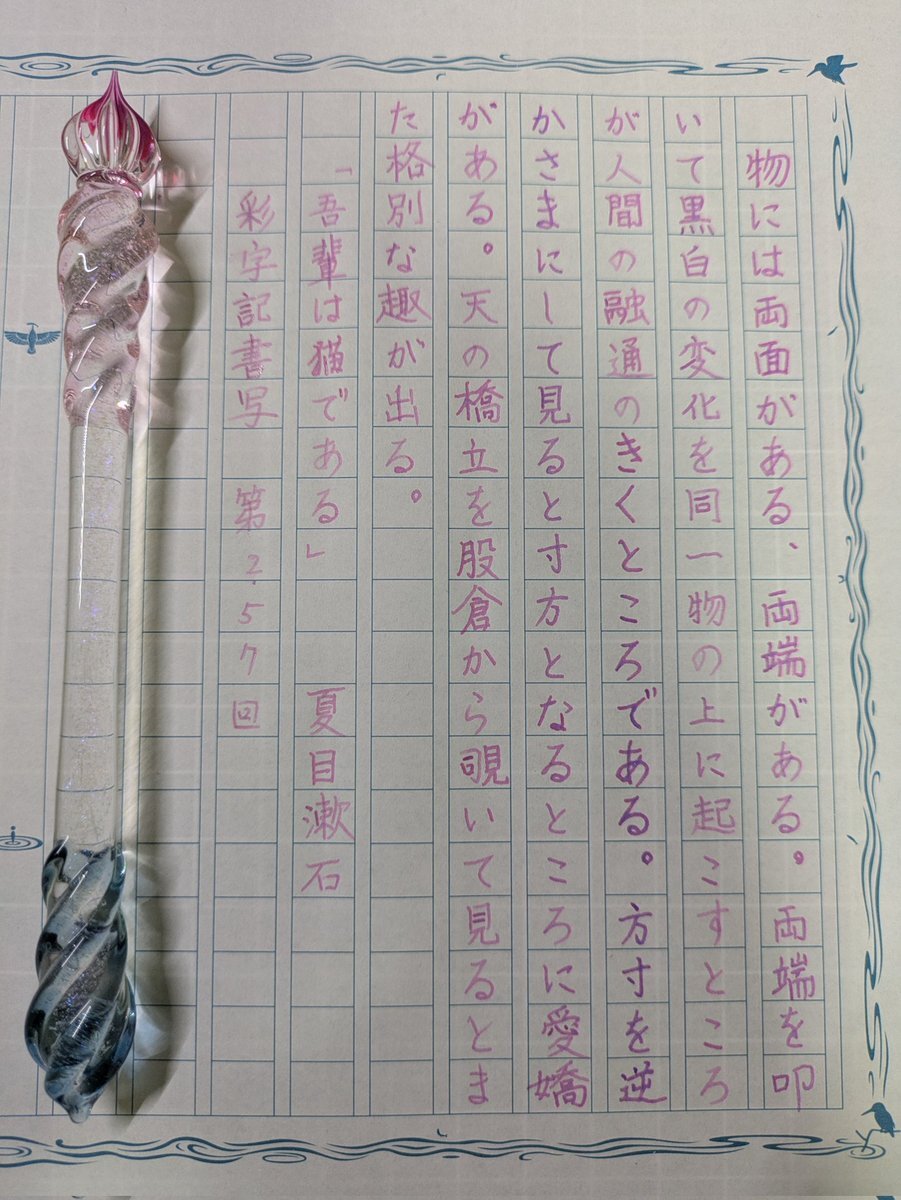 物には両面がある、両端がある。両端を叩
いて黒白の変化を同一物の上に起こすところ
が人間の融通のきくところである。方寸を逆
かさまにして見ると寸方となるところに愛嬌
がある。天の橋立を股倉から覗いて見るとま
た格別な趣が出る。
「吾輩は猫である」 夏目漱石
彩字記書写 第257回